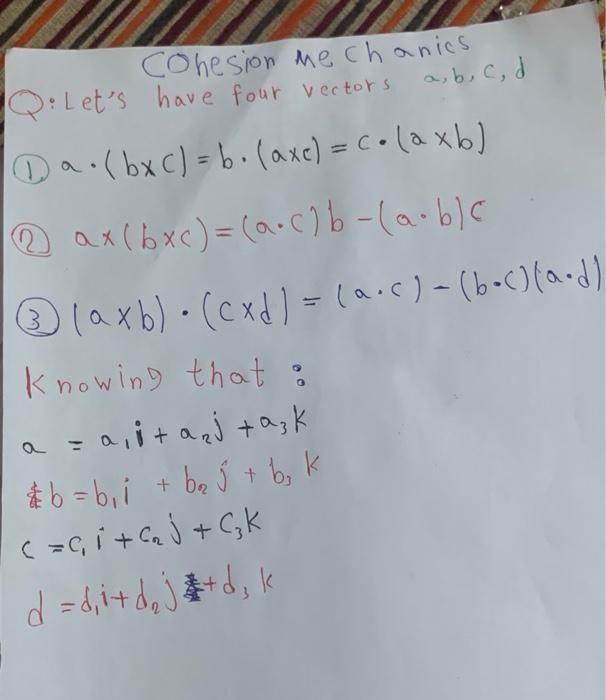 Cohesion mechanics
Q: Let's have four vectors a, b, c, d
① a · (b×c) = b · (a×c) = c · (a×b)
② a×(b×c) = (a·c)b - (a·b)c
③ (a×b) · (c×d) = (a·c) - (b·c)(a·d)
Knowing that :
a = a₁i + a₂j + a₃k
b = b₁i + b₂j + b₃k
c = c₁i + c₂j + c₃k
d = d₁i + d₂j + d₃k